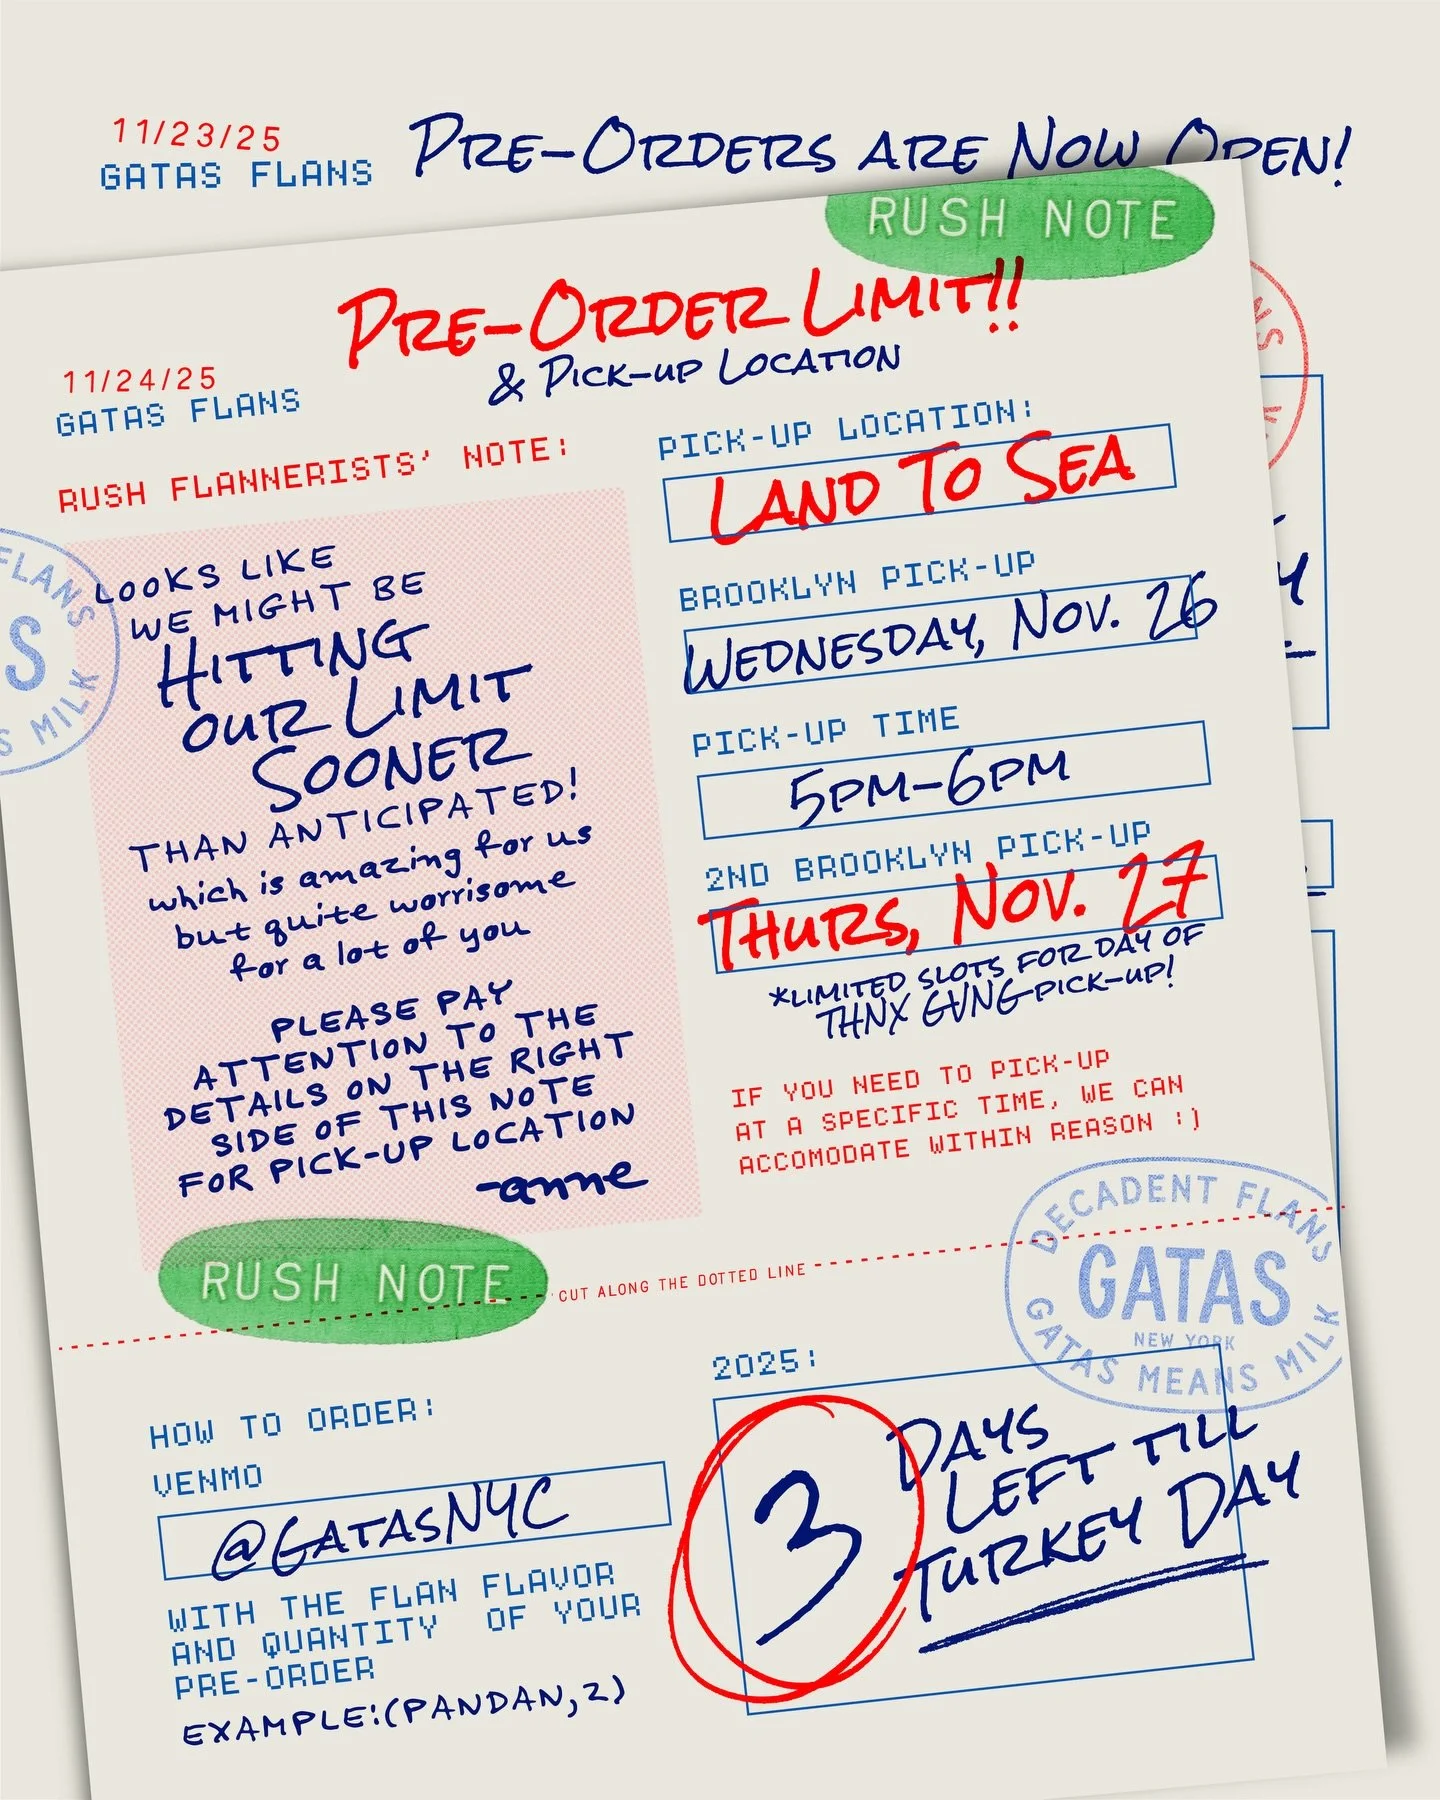 11/23/25
GATAS FLANS
PRE-ORDERS ARE NOW OPEN!
RUSH NOTE
PRE-ORDER LIMIT!!
& PICK-UP LOCATION
11/24/25
GATAS FLANS
RUSH FLANNERISTS' NOTE:
LOOKS LIKE
WE MIGHT BE
HITTING
OUR LIMIT
SOONER
THAN ANTICIPATED!
which is amazing for us
but quite worrisome
for a lot of you
PLEASE PAY
ATTENTION TO THE
DETAILS ON THE RIGHT
SIDE OF THIS NOTE
FOR PICK-UP LOCATION
-anne
FLANS
S
S MILK
PICK-UP LOCATION:
LAND TO SEA
BROOKLYN PICK-UP
WEDNESDAY, NOV. 26
PICK-UP TIME
5PM-6PM
2ND BROOKLYN PICK-UP
THURS, NOV. 27
*LIMITED SLOTS FOR DAY OF
THNX GVNG PICK-UP!
IF YOU NEED TO PICK-UP
AT A SPECIFIC TIME, WE CAN
ACCOMODATE WITHIN REASON :)
RUSH NOTE
CUT ALONG THE DOTTED LINE
DECADENT FLANS
GATAS
NEW YORK
GATAS MEANS MILK
HOW TO ORDER:
VENMO
@GATASNYC
WITH THE FLAN FLAVOR
AND QUANTITY OF YOUR
PRE-ORDER
EXAMPLE:(PANDAN,2)
2025:
3 DAYS
LEFT TILL
TURKEY DAY